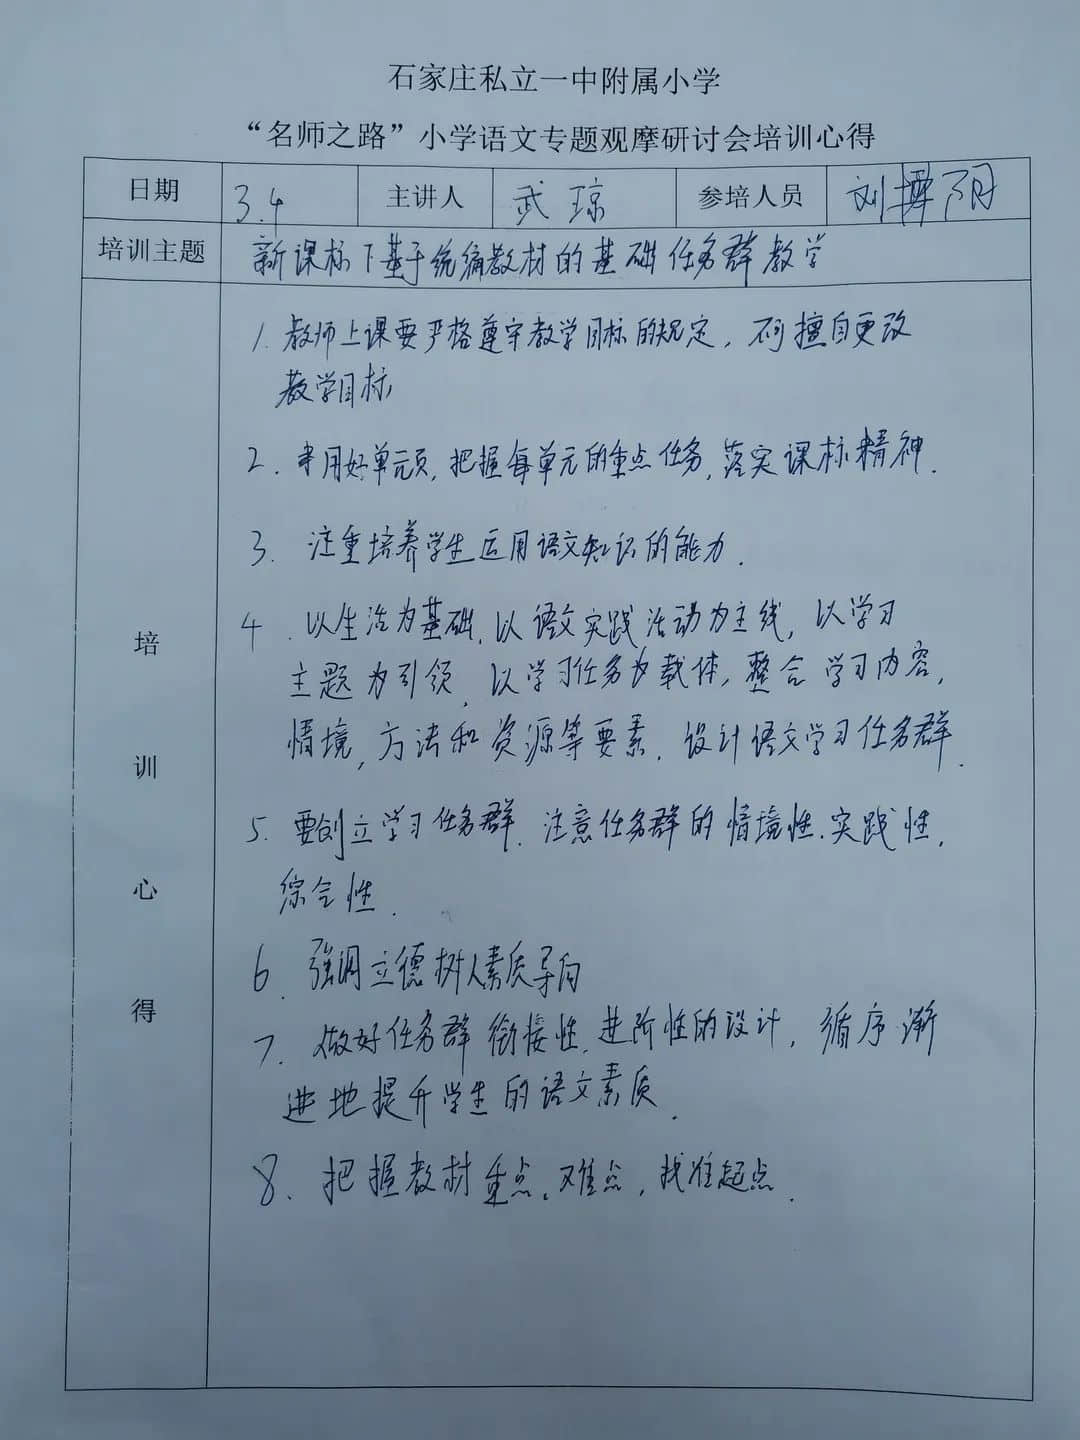 石家庄私立一中附属小学
“名师之路”小学语文专题观摩研讨会培训心得
日期 3.4 主讲人 武琼 参培人员 刘
培训主题 新课标下基于统编教材的基础任务群教学
培训心得
1. 教师上课要严格遵守教学目标的规定，不可擅自更改
教学目标
2. 用好单元页，把握每单元的重点任务，落实课标精神.
3. 注重培养学生运用语文知识的能力.
4. 以生活为基础，以语文实践活动为主线，以学习
主题为引领，以学习任务为载体，整合学习内容，
情境，方法和资源等要素，设计语文学习任务群.
5. 要创立学习任务群，注意任务群的情境性.实践性，
综合性.
6. 强调立德树人素质导向
7. 做好任务群衔接性，进阶性的设计，循序渐
进地提升学生的语文素质.
8. 把握教材重点、难点，找准起点.